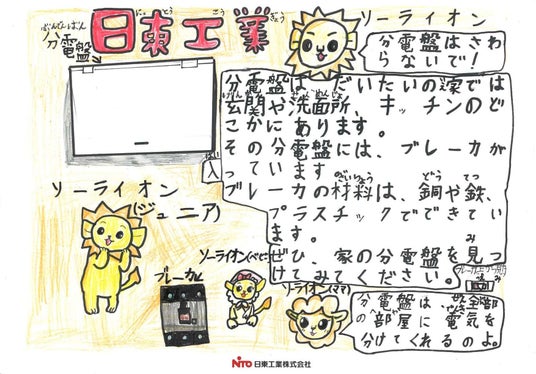 分電盤
日東工業
ソーライオン
分電盤はさわ
らないで!
分電盤は、だいたいの家では
玄関や洗面所、キッチンのど
こかにあります。
その分電盤には、ブレーカが
入っています
ブレーカの材料は、銅や鉄、
プラスチックでできてい
ます。
ぜひ、家の分電盤を見つ
けてみてください。
ソーライオン
(ジュニア)
ソーライオン(ベビー)
ブレーカ
ソーライオン(ママ)
分電盤は、全部
の部屋に電気を
分けてくれるのよ。
NITO 日東工業株式会社